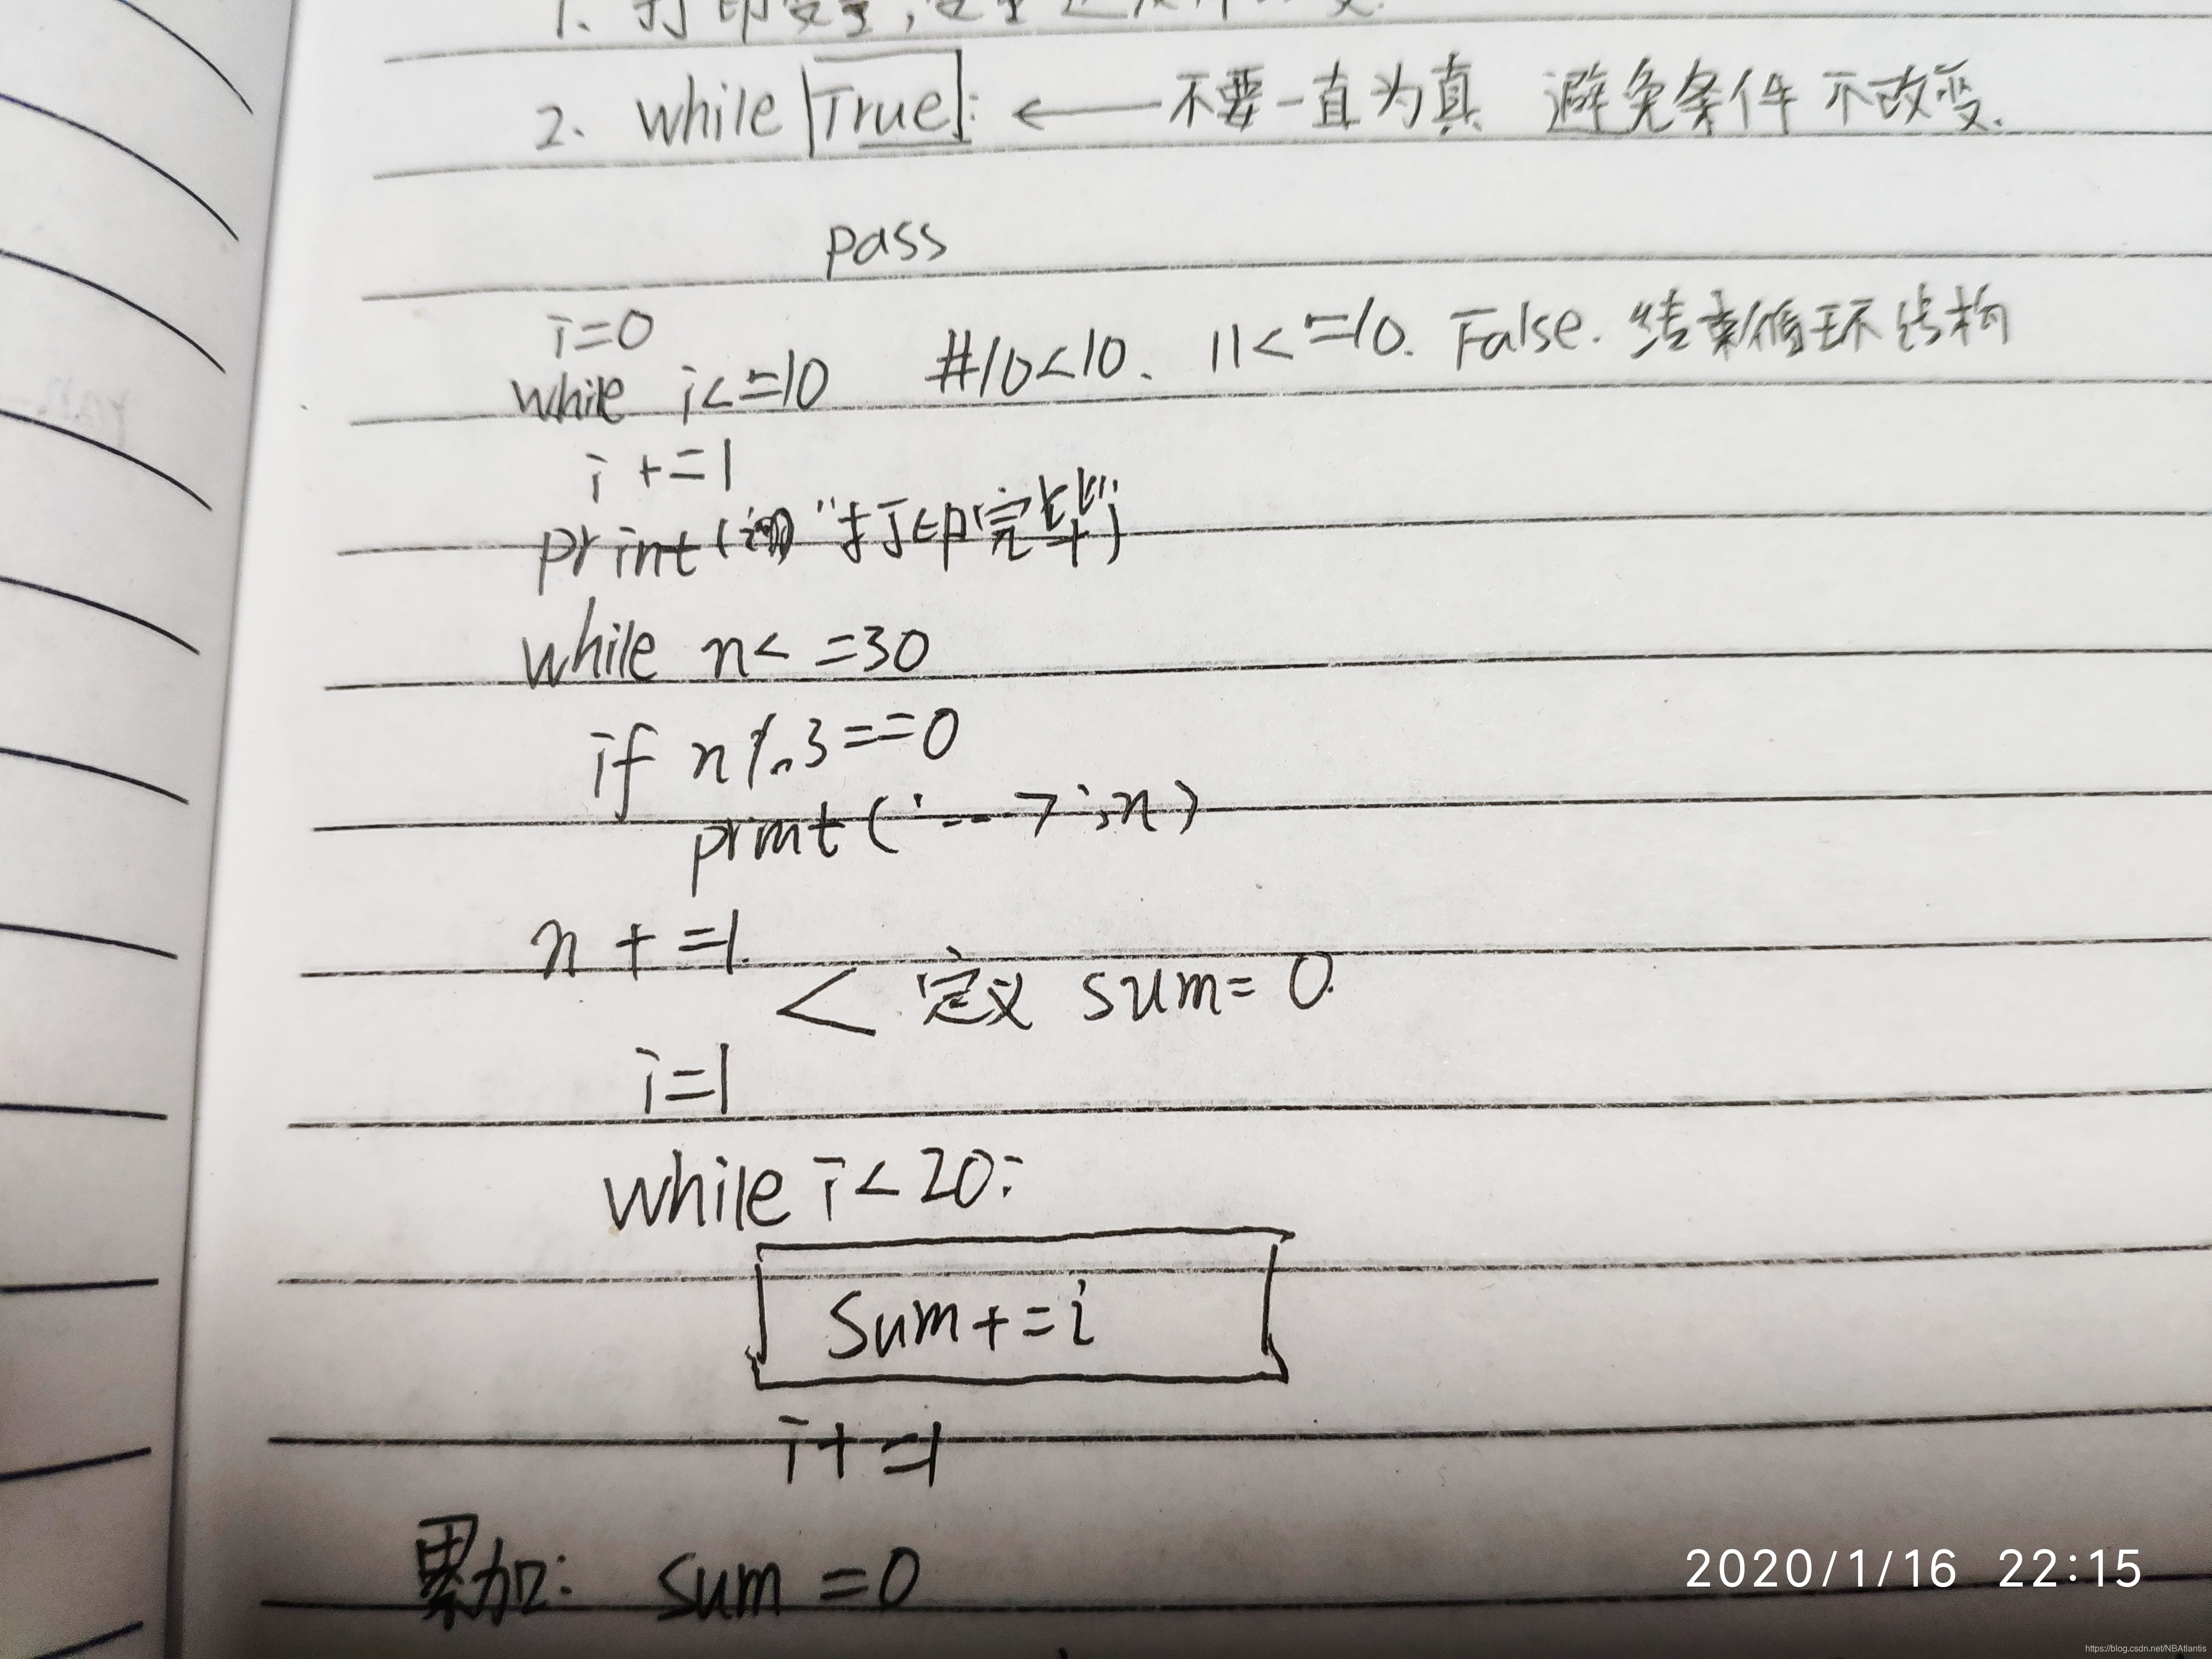 1. 打印变量,变量
2. while True: ← 不要一直为真 避免条件不改变.
pass
i=0
while i<=10 #10<10. 11<=10. False. 结束循环结构
i+=1
print( "打印完毕")
while n<=30
if n%3==0
print('--->',n)
n+=1.
< 定义 sum=0.
i=1
while i<20:
sum+=i
i+=1
累加: sum=0
2020/1/16 22:15
https://blog.csdn.net/NBAtlantis